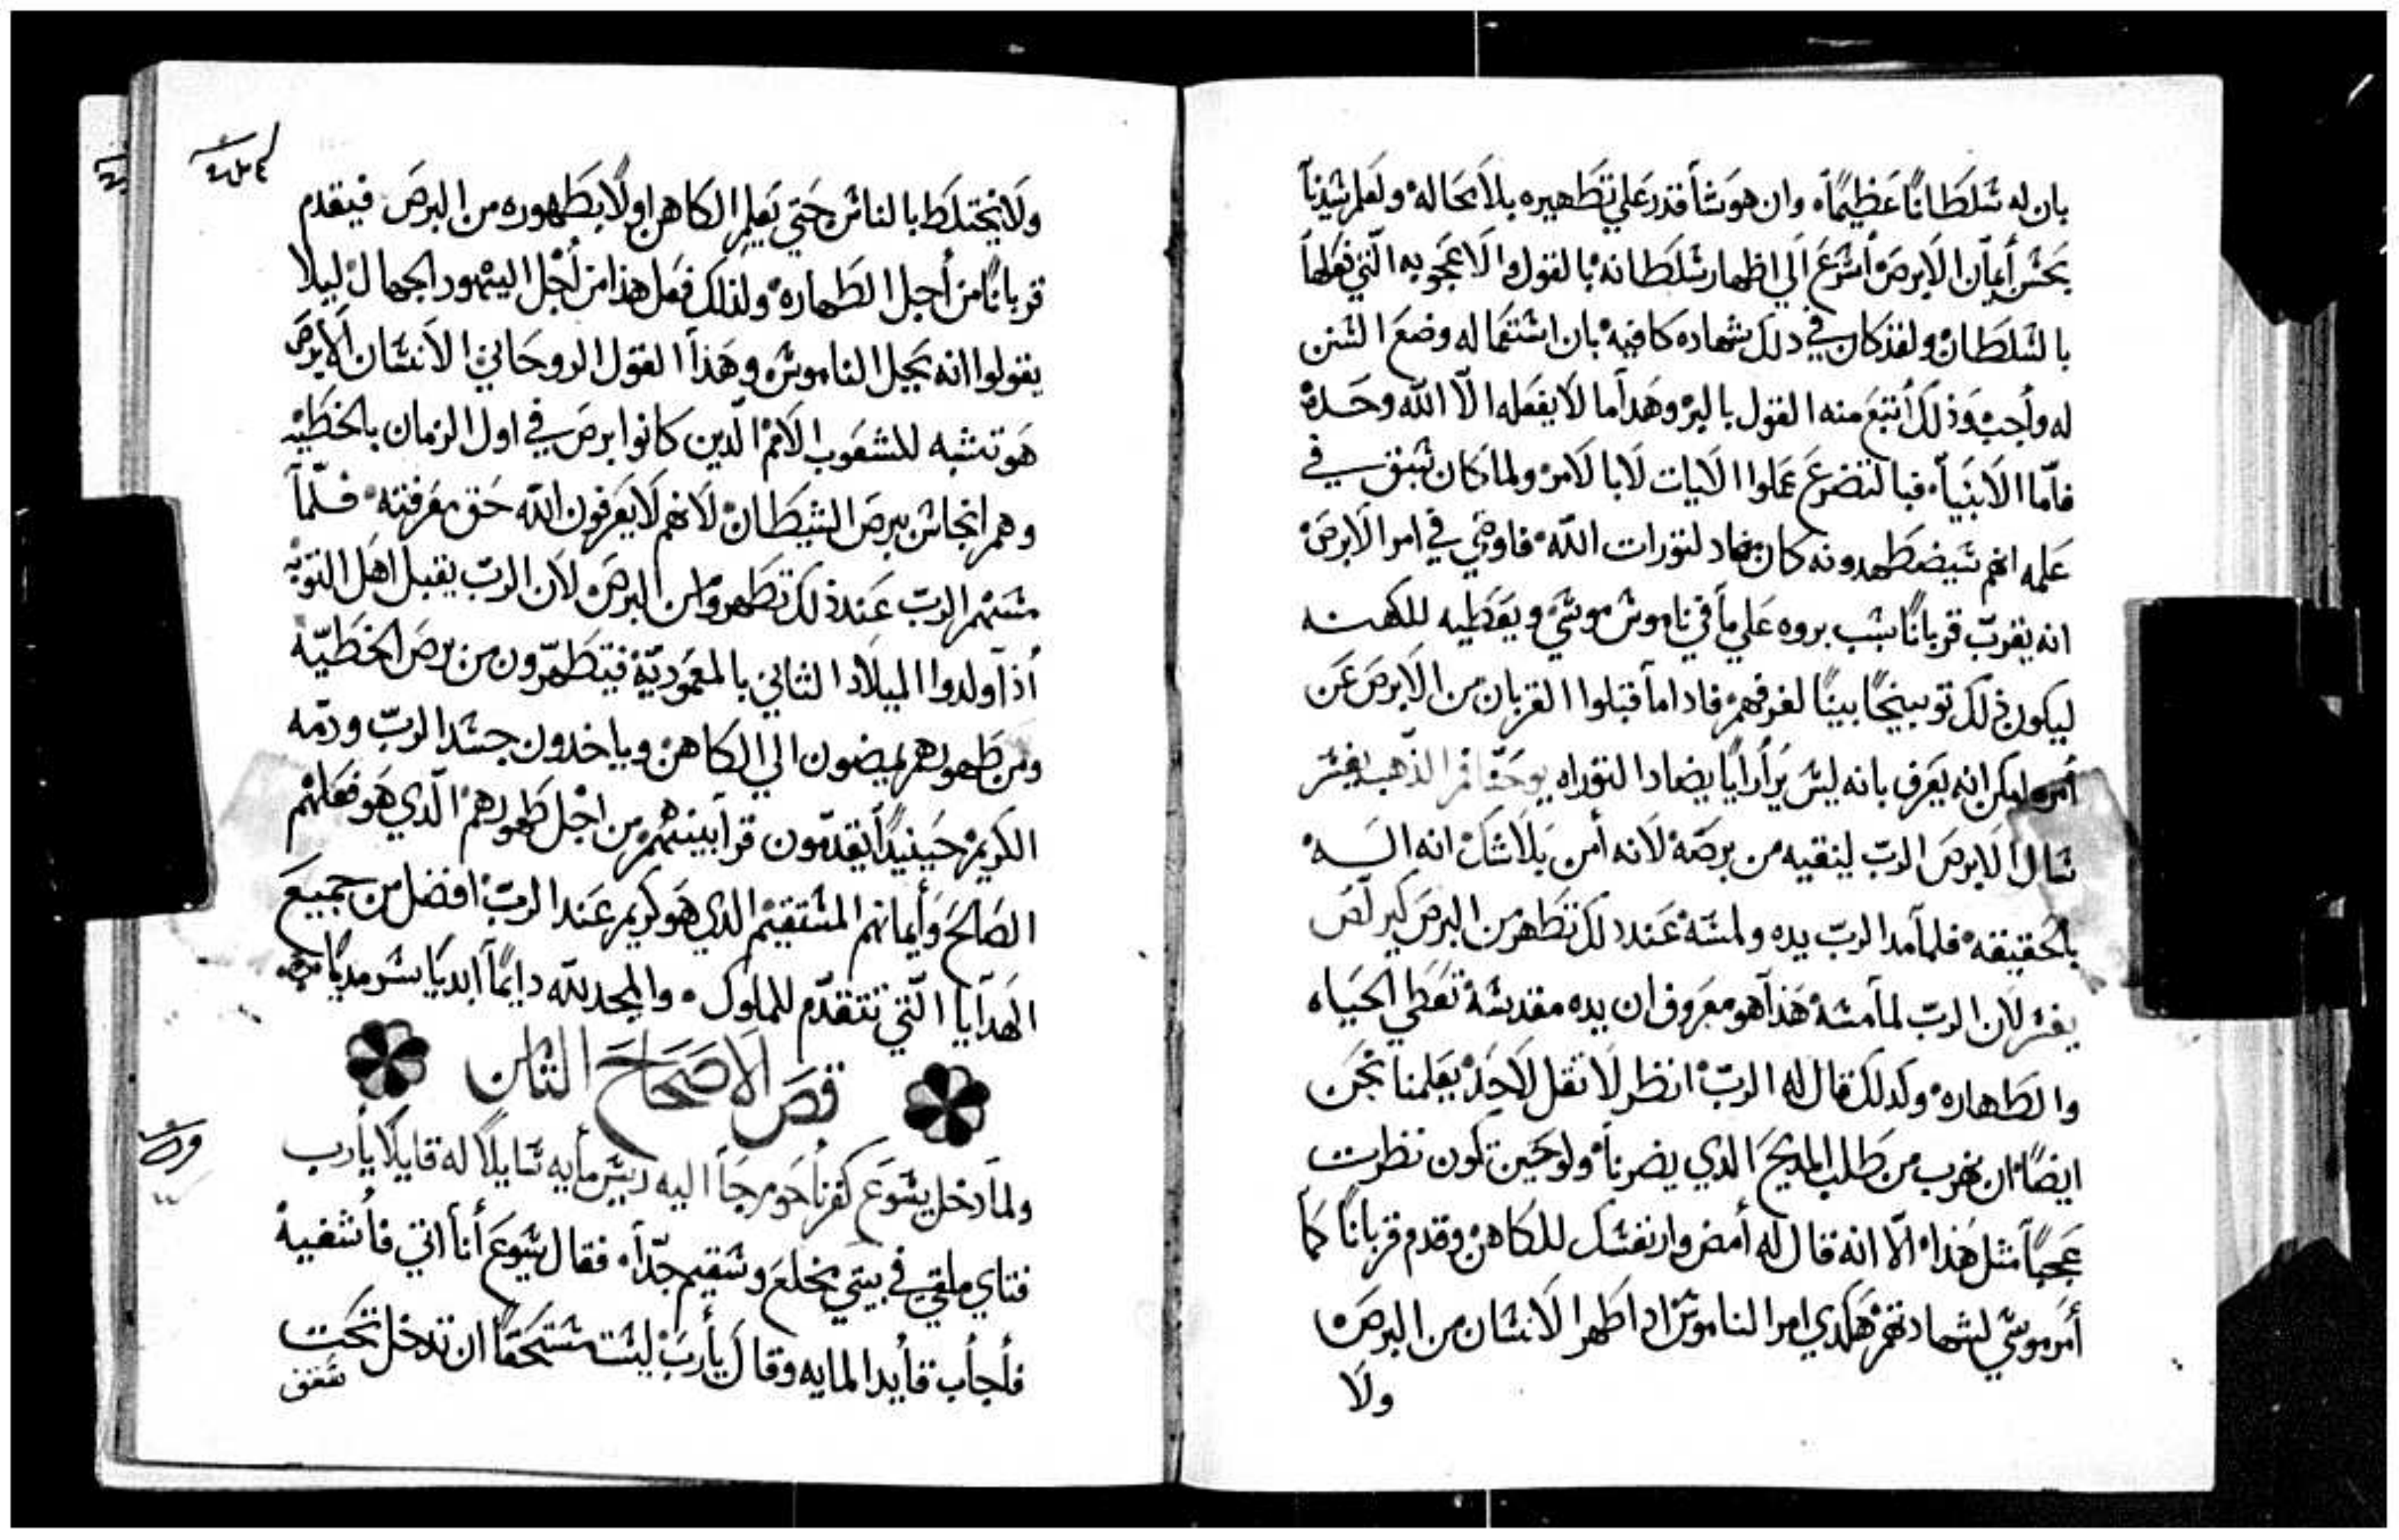 بان له شلطانًا عظيمًا، وان هو شأ قدر على تطهيره بلا محاله ولعلم شيدنا
بحسن أيمان الابرص أشرع الي اظهار شلطانه بالقول الاعجوبه التي فعلها
بالشلطان ولقد كان في دلك شهاده كافيه بان اشتعماله وضع الشنن
له واجب وذلك أتبع منه القول بالبر وهدا ما لا يفعله الّا الله وحده
فأمّا الانبيأ فبالتضرع عملوا الايات لا بالامر ولما كان شبق في
علمه انهم شيضطهدونه كان مضاد لتورات الله فاوصي في امر الابرص
انه يقرب قربانًا بشبب بروه علي مأ في ناموش موشي ويعطيه للكهنه
ليكون ذلك توبيخًا بينًا لغرفهم فاداما قبلوا القربان من الابرص عن
أمره ليكن انه يعرف بانه ليش يرأ رأيًا يضادا لتوراه يوحنا فم الذهب يفشر
شال الابرص الرب لينقيه من برصه لانه أمن بلا شك انه اله
بالحقيقه فلمأ مدا لرب يده ولمشه عند دلك تطهر من البرص كيرلص
يفشر لان الرب لمأ مشه هذا هو معروف ان يده مقدشة تعطي الحياه
والطهاره وكدلك قال له الربّ انظر لا تقل لاحد يعلمنا نحن
ايضًا ان نهرب من طلب المديح الدي يضرنا ولو حين تكون نظرت
عجبًا مثل هذا الّا انه قال له أمض وار نفشك للكاهن وقدم قربانًا كما
أمر موشي لشهادتهم هكدي امر الناموش ادا طهر الانشان من البرص
ولا
ولا يختلط بالناش حتي يعلم الكاهن اولًا بطهوره من البرص فيقدم
قربانًا من أجل الطهاره ولذلك فعل هذا من أجل اليهود الجهال ليلا
يقولوا انه يحيل الناموش وهذا القول الروحاني الانشان الابرص
هو تشبه للشعوب الامم الّدين كانوا برص في اول الزمان بالخطيه
وهم انجاش ببرص الشيطان لانهم لا يعرفون الله حق معرفته فلمّا
مشهم الربّ عند ذلك تطهروا من البرص لان الربّ يقبل اهل التوبه
أذا ولدوا الميلاد الثاني بالمعموديّة فيتطهّرون من برص الخطيّه
ومن طهورهم يمضون الي الكاهن وياخدون جشد الربّ ودمّه
الكريم حينيدًا يقدمون قرأبينهم من اجل طهورهم الّدي هو فعلهم
الصالح وأيمانهم المشتقيم الدي هو كريم عند الربّ افضل من جميع
الهدايا الّتي تتقدّم للملوك والمجد لله دايمًا ابديًا شرمديًا
فص الاصحاح الثامن
ولمأ دخل يشوع كفرناحوم جأ اليه رييش مأيه شايلًا له قايلًا يأرب
فتاي ملقي في بيتي مخلع وشقيم جدّا فقال يشوع أنا اتي فأشفيه
فأجأب قأيد المايه وقال يأرب ليشت مشتحقًا ان تدخل تحت
شقف